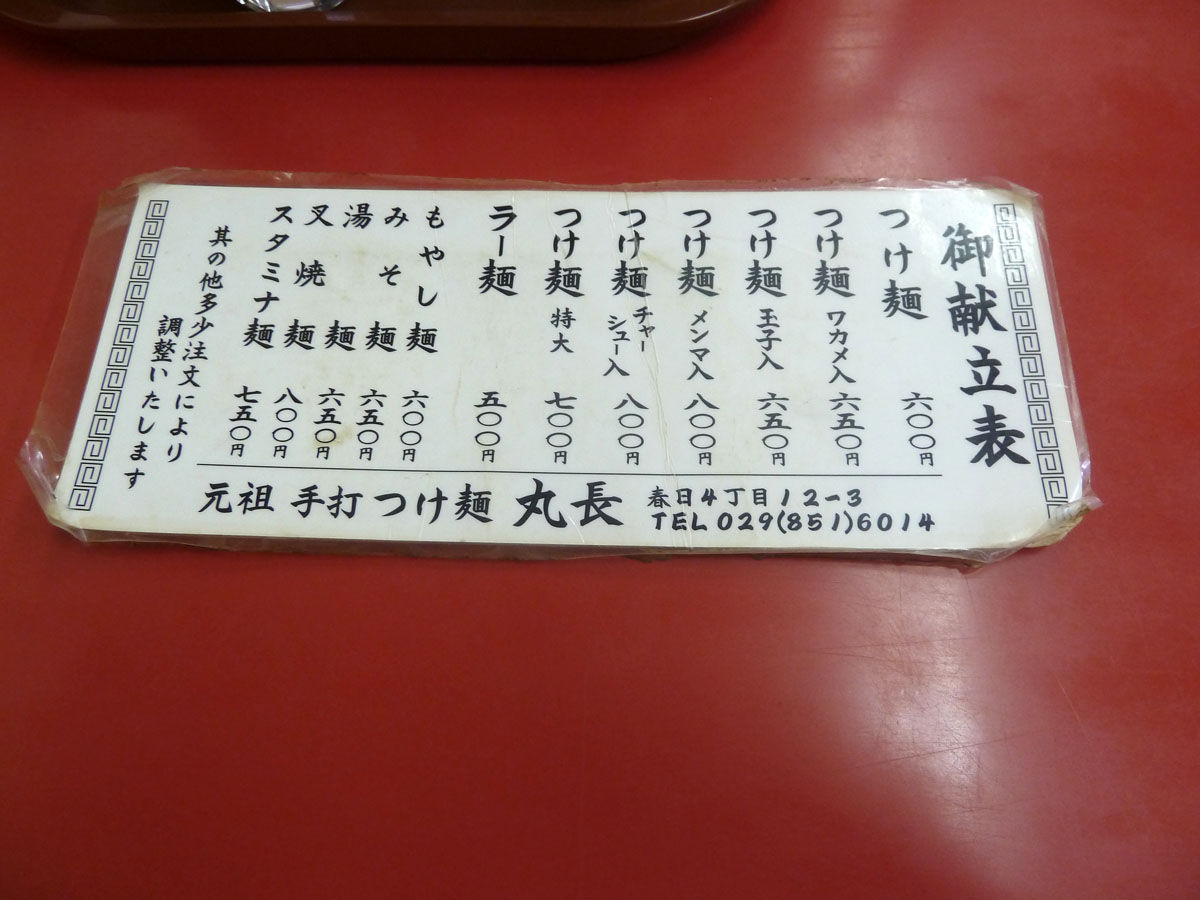 御献立表
つけ麺 六〇〇円
つけ麺 ワカメ入 六五〇円
つけ麺 玉子入 六五〇円
つけ麺 メンマ入 八〇〇円
つけ麺 チャーシュー入 八〇〇円
つけ麺 特大 七〇〇円
ラー麺 五〇〇円
もやし麺 六〇〇円
みそ麺 六五〇円
湯麺 六五〇円
叉焼麺 八〇〇円
スタミナ麺 七五〇円
其の他多少注文により
調整いたします
元祖 手打 つけ麺 丸長
春日4丁目12-3
TEL 029(851)6014